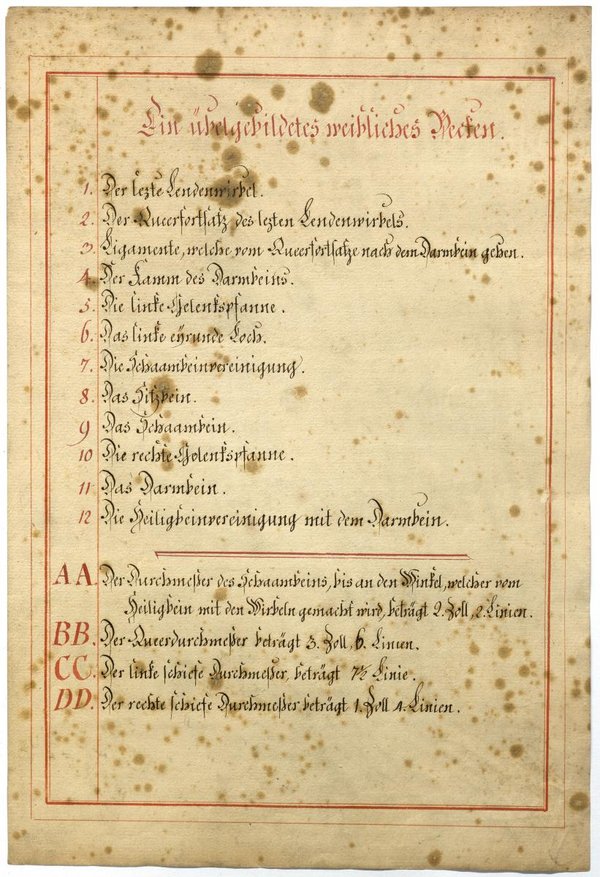 Ein übelgebildetes weibliches Becken.
1. Der lezte Lendenwirbel.
2. Der Queerfortsatz des lezten Lendenwirbels.
3 Ligamente, welche vom Queerfortsatze nach dem Darmbein gehen.
4. Der Kamm des Darmbeins.
5. Die linke Gelenkspfanne.
6. Das linke eyrunde Loch.
7. Die Schaambeinvereinigung.
8. Das Sitzbein.
9 Das Schaambein.
10 Die rechte Gelenkspfanne.
11 Das Darmbein.
12 Die Heiligbeinvereinigung mit dem Darmbein.
AA. Der Durchmeßer des Schaambeins, bis an den Winkel, welcher vom
Heiligbein mit den Wirbeln gemacht wird, beträgt 2. Zoll, 2. Linien.
BB. Der Queerdurchmeßer beträgt 3. Zoll, 6. Linien.
CC. Der linke schiefe Durchmeßer, beträgt 7½ Linie.
DD. Der rechte schiefe Durchmeßer beträgt 1. Zoll 4. Linien.